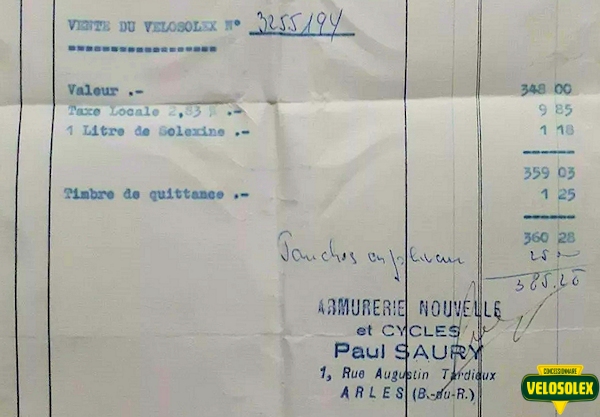 VENTE DU VELOSOLEX N° 3255194
Valeur .- 348 00
Taxe Locale 2,83 % .- 9 85
1 Litre de Solexine .- 1 18
359 03
Timbre de quittance .- 1 25
360 28
25
385.28
ARMURERIE NOUVELLE
et CYCLES
Paul SAURY
1, Rue Augustin Tardieux
ARLES (B.-du-R.)
CONCESSIONNAIRE
VELOSOLEX